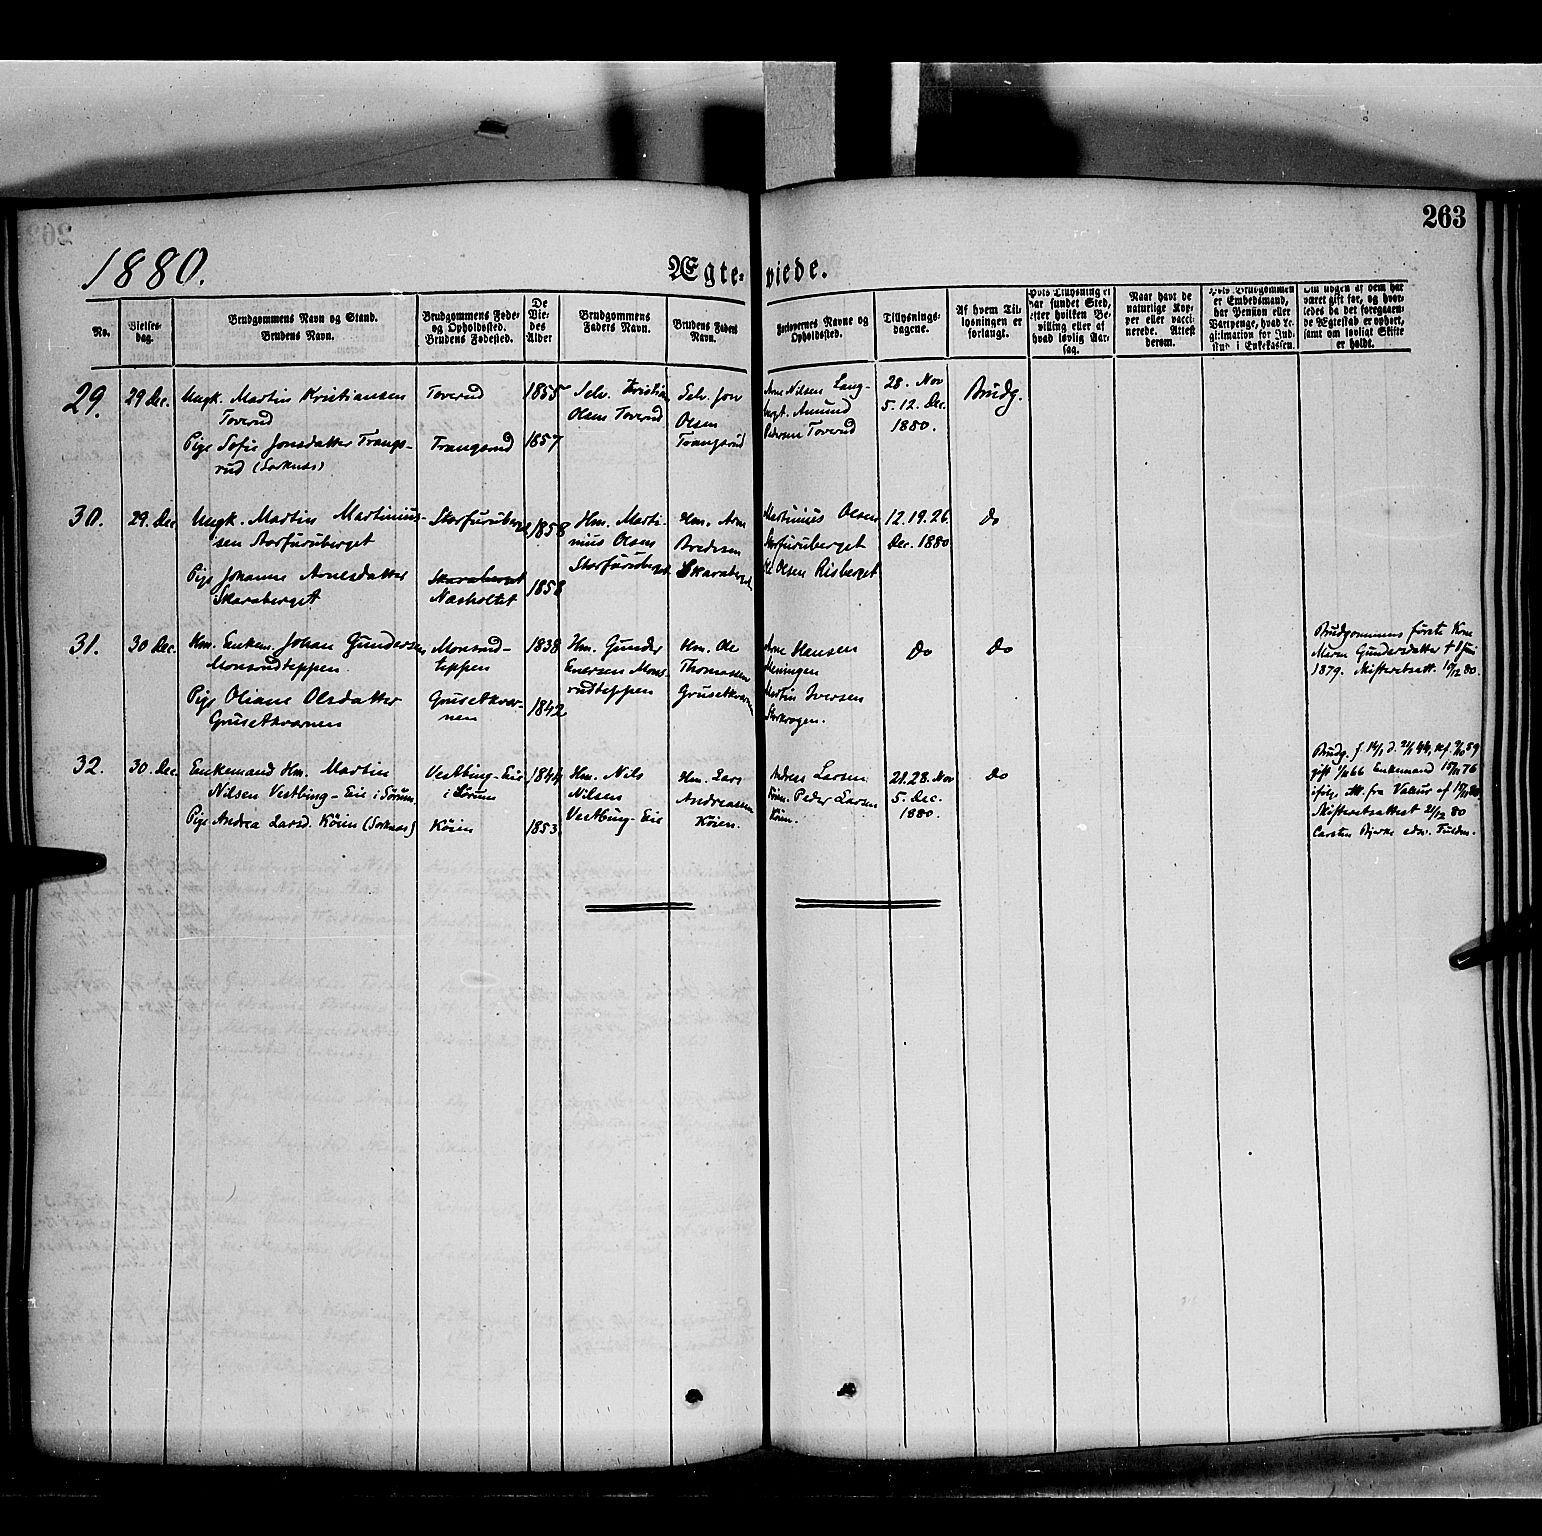 263
1880.
Ægte- viede.
No.
Vielses-
dag.
Brudgommens Navn og Stand.
Brudens Navn.
Brudgommens Føde-
og Opholdssted.
Brudens Fødested.
De
Vie-
des
Alder
Brudgommens
Faders Navn.
Brudens Faders
Navn.
Forlovernes Navne og
Opholdssted.
Tillysnings-
dagene.
Af hvem Til-
lysningen er
forlangt.
Hvis Tillysning ei
har fundet Sted,
efter hvilken Be-
villing eller af
hvad lovlig Aar-
sag.
Naar havt de
naturlige Kop-
per eller vacci-
nerede. Attest
derom.
Hvis Brudgommen
er Embedsmand,
har Pension eller
Vartpenge, hvad Le-
gitimation for Ind-
skud i Enkekassen.
Om nogen af dem har
været gift før, og hvor-
ledes da det foregaaen-
de Ægteskab er ophørt,
samt om lovligt Skifte
er holdt.
29.
29 Dec.
Ungk. Martin Kristiansen
Toverud
Pige Sofie Jonsdatter Trangs-
rud (Sorknæs)
Toverud
Trangsrud
1855
1857
Selv. Kristian
Olsen Toverud
Selv. Jon
Olsen
Trangsrud
Arne Nilsen Lang-
Amund
Pedersen Toverud
28. Nov
5. 12. Dec.
1880.
Brudg.
30.
29. Dec
Ungk. Martin Martinius-
sen Storfuruberget
Pige Johanne Arnesdatter
Skaraberget
Storfuruberget
Skaraberget
Næsholtet
1858
1858
Hm. Marti-
nius Olsen
Storfuruberget
Hm. Arne
Bredesen
Skaraberget
Martinius Olsen
Storfuruberget
Ole Olsen Risberget
12. 19. 26.
Dec. 1880
Do
31.
30 Dec.
Hm. Enkem. Johan Gundersen
Monsrudteppen
Pige Oliane Olsdatter
Grusetkvarnen
Monsrud-
teppen
Grusetkvar-
nen
1838
1842
Hm. Gunder
Enersen Mons-
rudteppen
Hm. Ole
Thomassen
Grusetkvarnen
Arne Hansen
Meningen
Martin Iversen
Storkrogen.
Do
Do
Brudgommens første Kone
Maren Gundersdatter †
1879. Skifteretsatt. 10/12 80.
32.
30. Dec
Enkemand Hm. Martin
Nilsen Vestbing-Eie i Sørum
Pige Andrea Larsd. Køien (Sorknæs)
Vestbing-Eie
i Sørum
Køien
1844
1853
Hm. Nils
Nilsen
Vestbing-Eie
Hm. Lars
Andreassen
Køien.
Andreas Larsen
Køien. Peder Larsen
Køien.
21. 28. Nov
5. Dec.
1880.
Do
Brudg. f. 14/1 d. 44, kf. 59
gift 66 Enkemand 76
Att. fra
Skifteretsattest 21/12 80
Carsten Bjerke edsv. Fuldm.